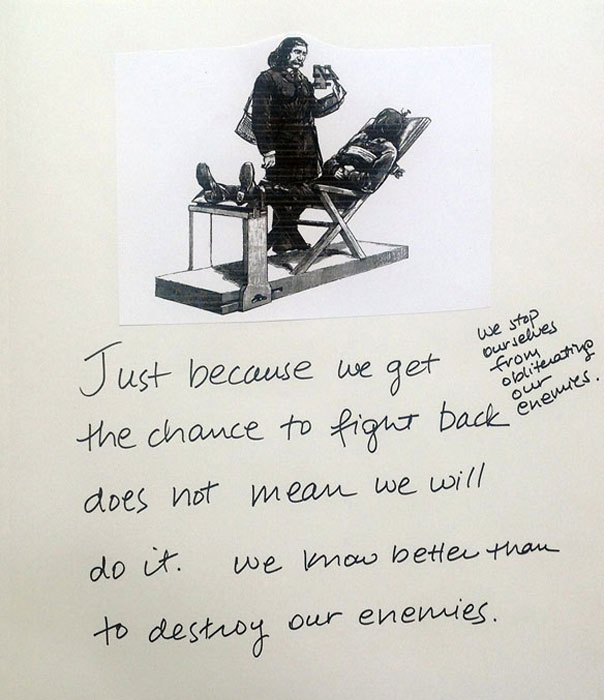 Just because we get
the chance to fight back
does not mean we will
do it. We know better than
to destroy our enemies.
We stop
ourselves
from
obliterating
our
enemies.